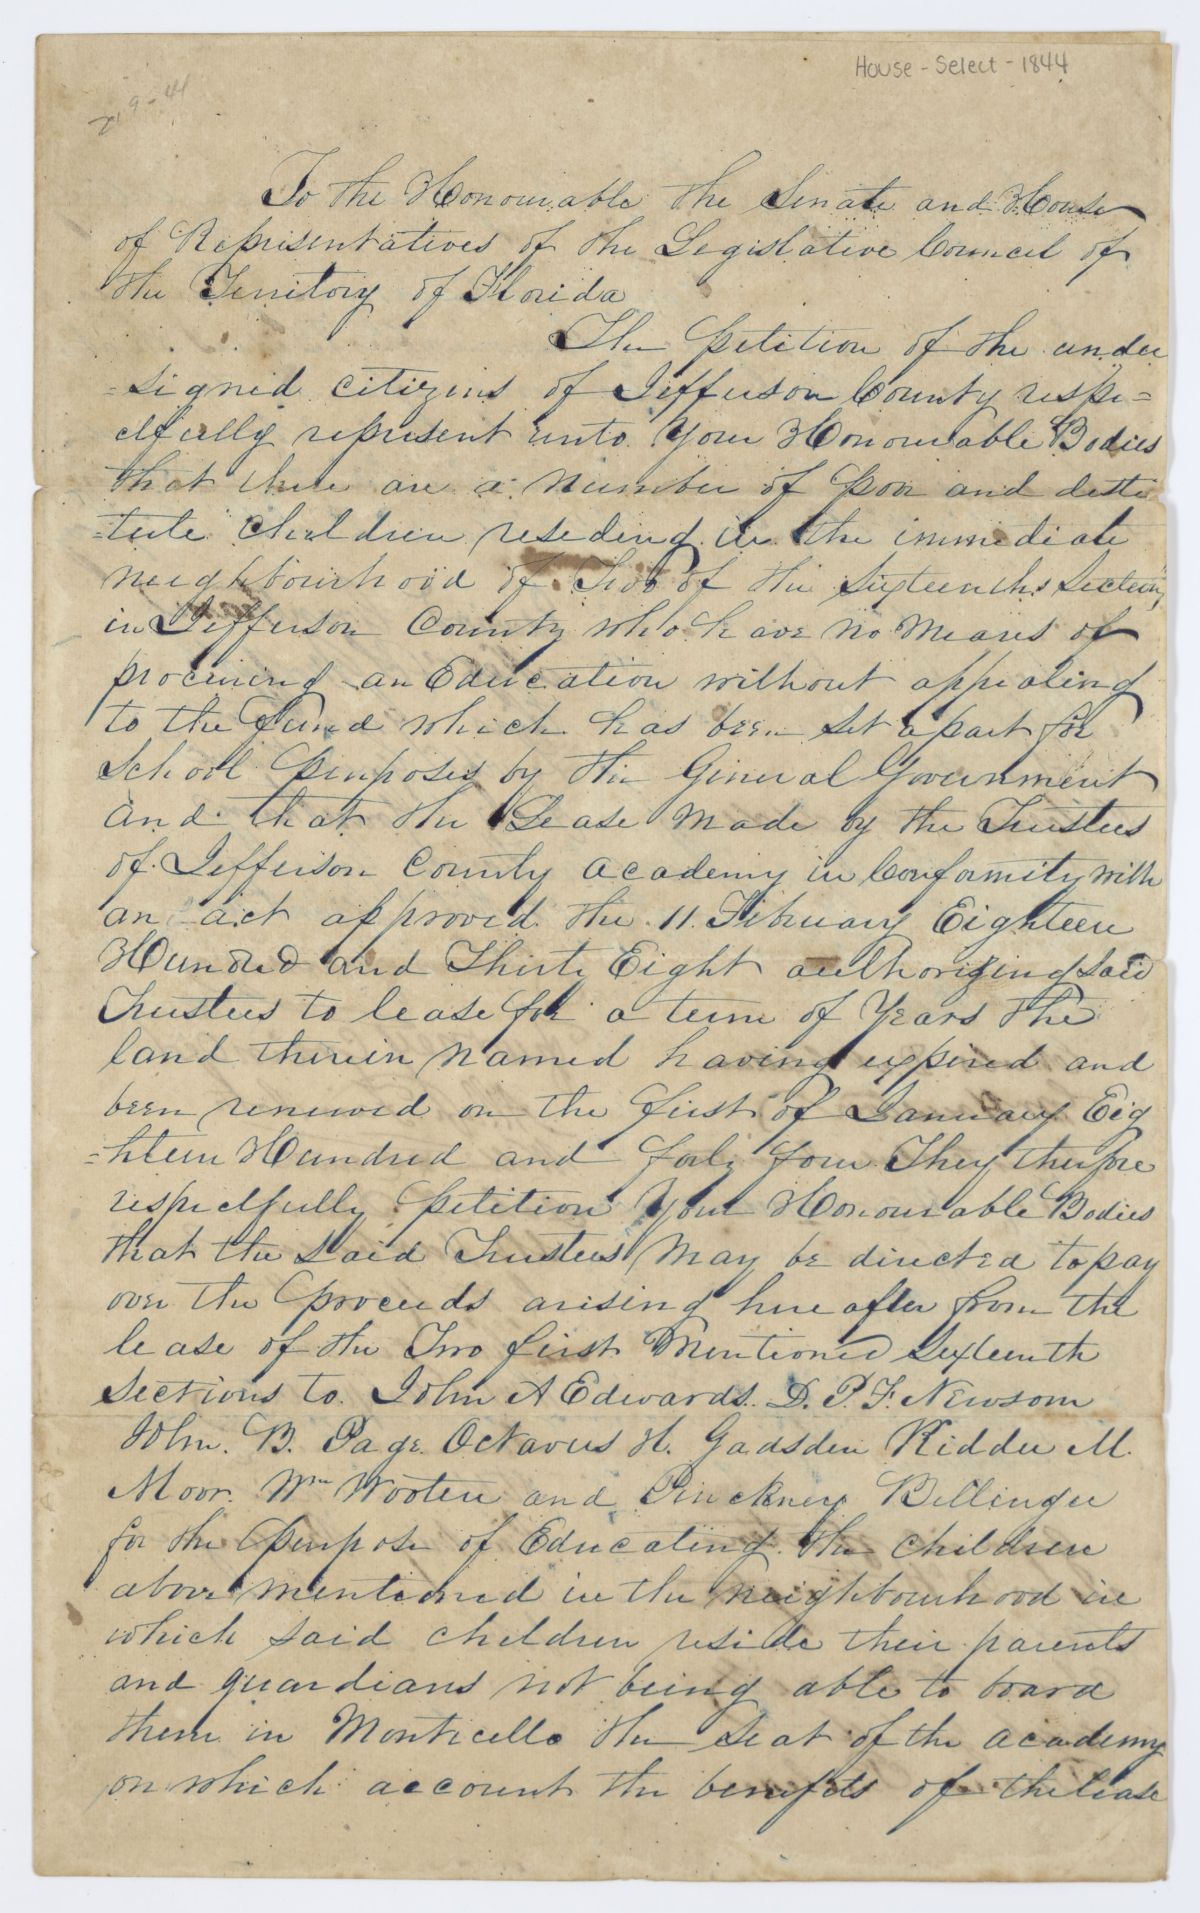 House - Select - 1844
To the Honourable the Senate and House
of Representatives of the Legislative Council of
the Territory of Florida
The Petition of the under
=signed citizens of Jefferson County respe=
ctfully represent unto Your Honourable Bodies
that there are a number of poor and desti
=tute children reseding in the immediate
neighbourhood of Two of the Sixteenths Sections
in Jefferson County who have no means of
procuring an Education without appealing
to the fund which has been set apart for
School purposes by the General Government
and that the Lease made by the Trustees
of Jefferson County academy in Conformity with
an act approved the 11 February Eighteen
Hundred and Thirty Eight authorizing said
Trustees to lease for a term of Years the
land therein named having expired and
been renewed on the first of January Eig
=hteen Hundred and forty four They therefore
respectfully Petition Your Honourable Bodies
that the said Trustees may be directed to pay
over the proceeds arising hereafter from the
lease of the Two first Mentioned sixteenth
Sections to John A Edwards. D. P. F. Newsom
John. B. Page. Octavus H. Gadsden Kidder M.
Moor. Wm Wooten and Pinckney Bellinger
for the purpose of Educating the children
above mentioned in the neighbourhood in
which said children reside their parents
and guardians not being able to board
them in Monticello the seat of the academy
on which account the benefits of the lease